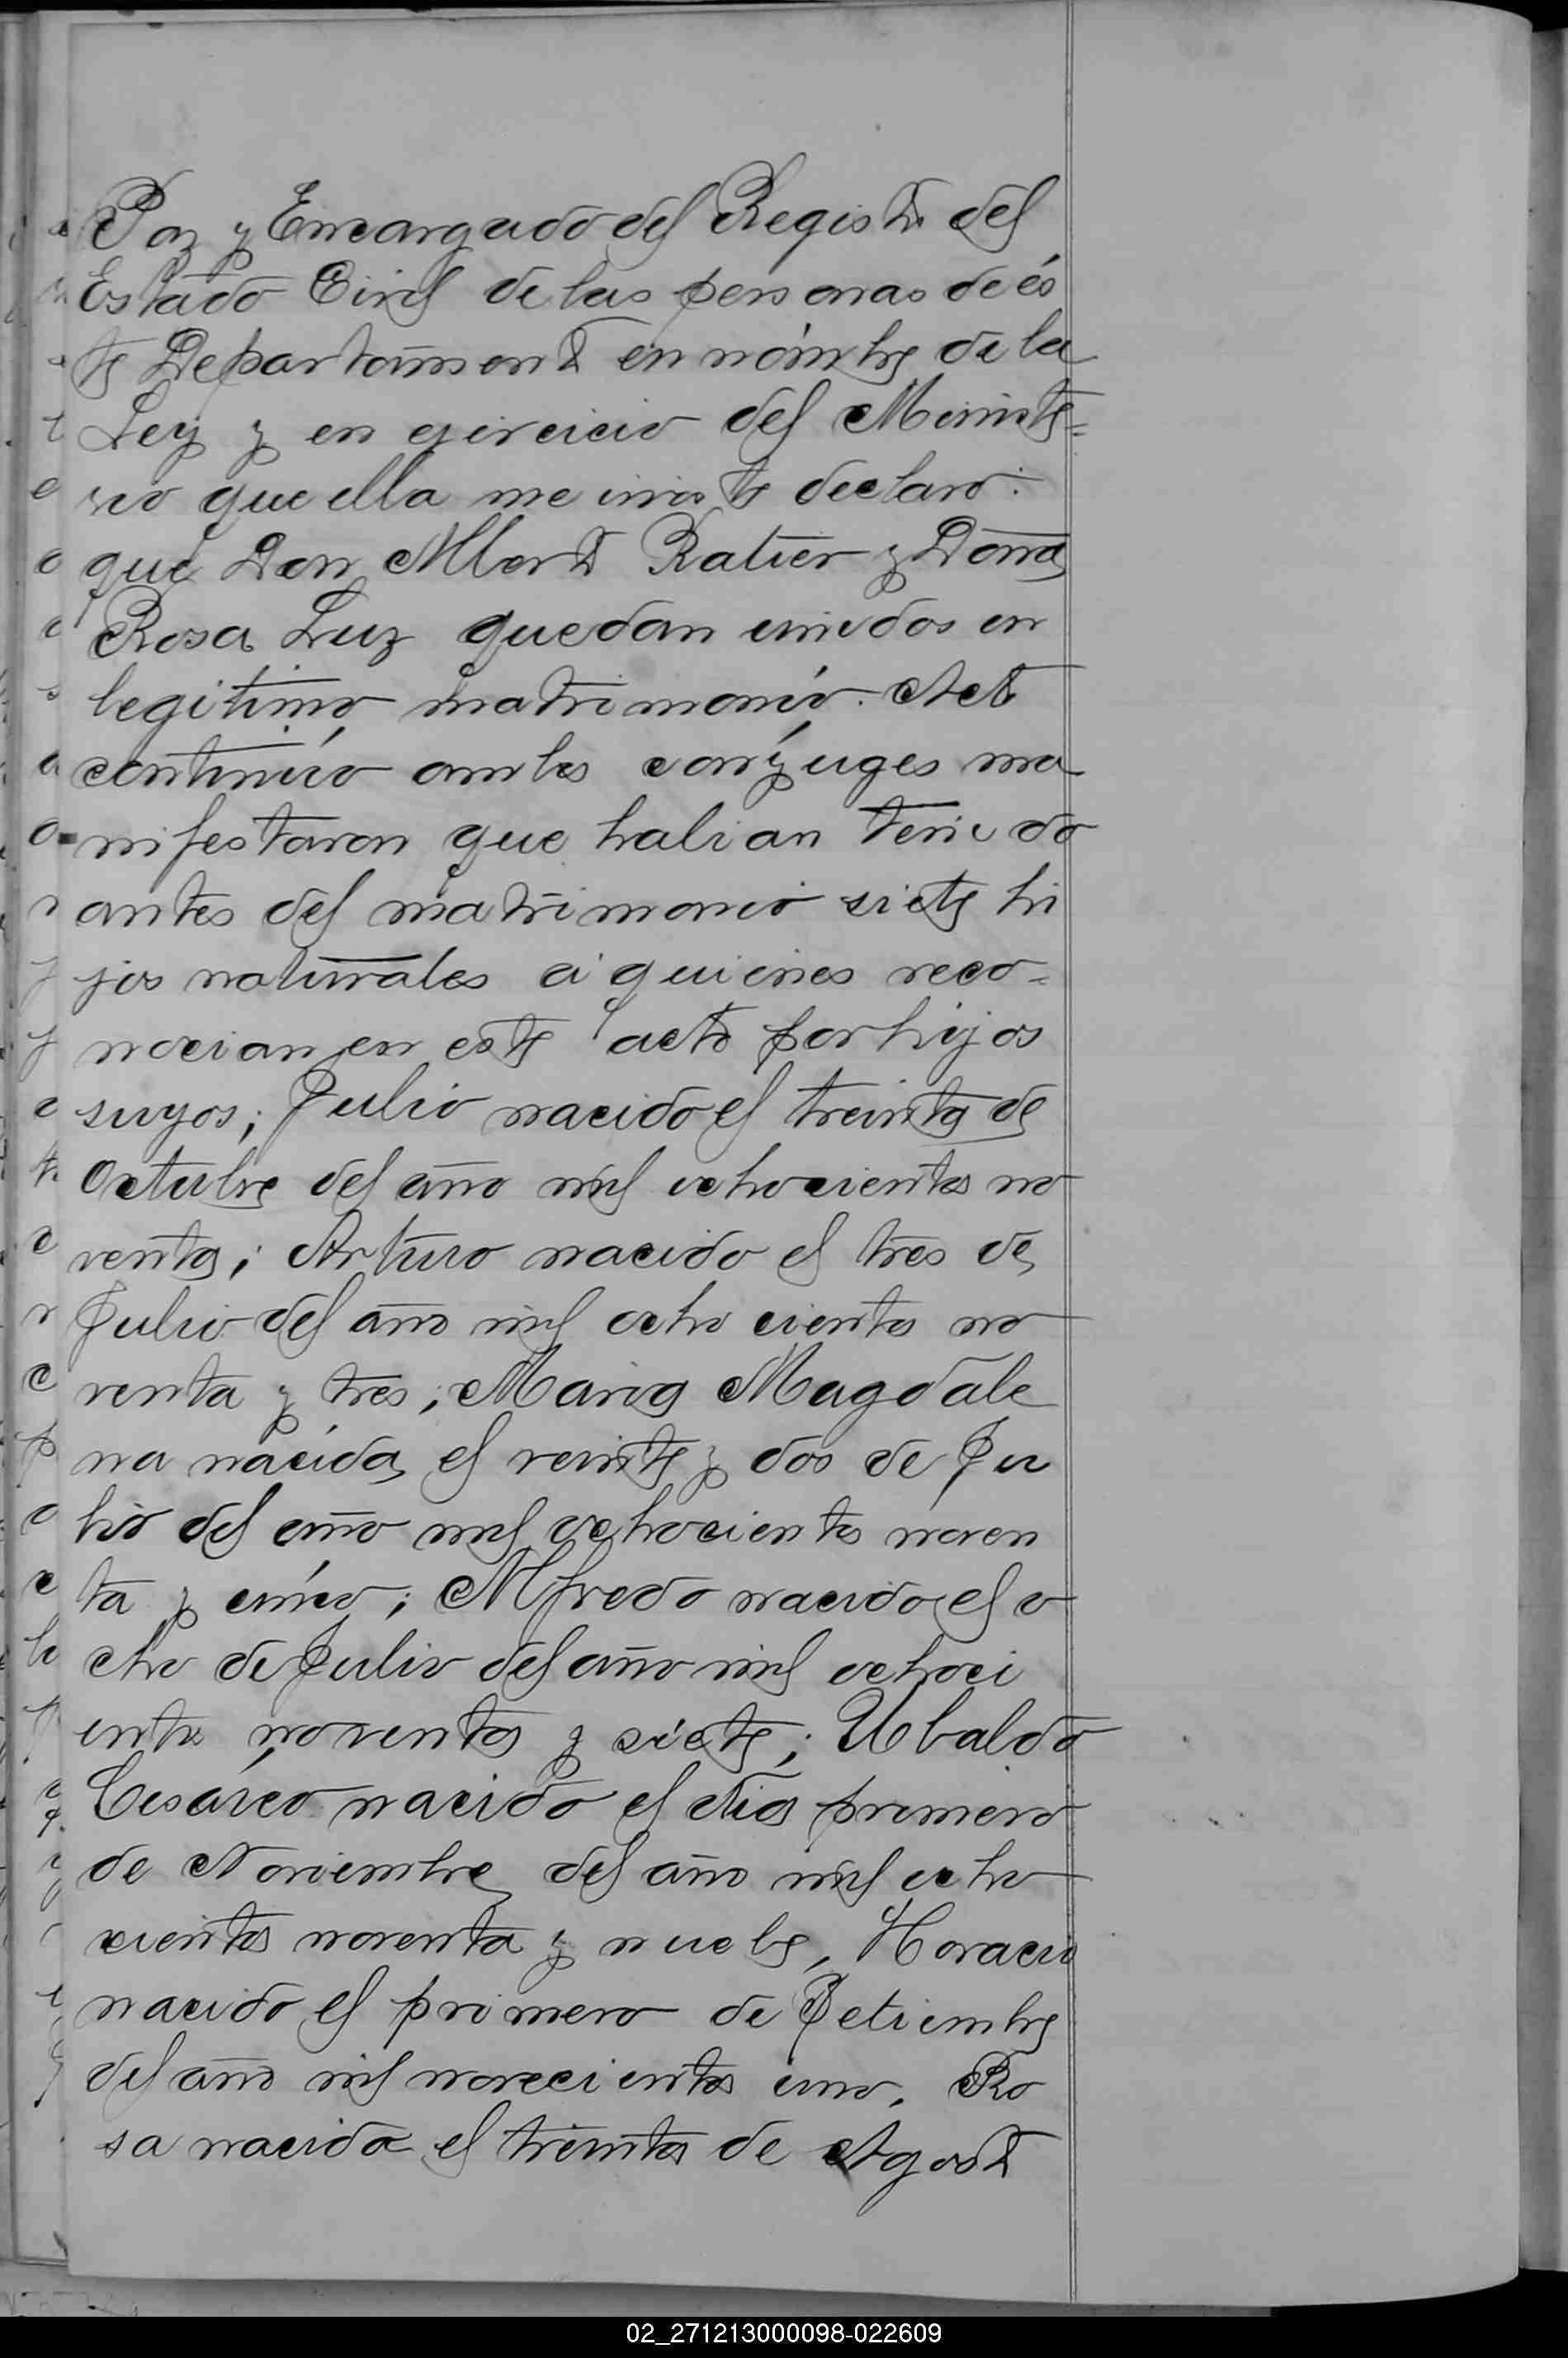 Paz y Encargado del Registro del
Estado Civil de las personas de és
te Departamento en nómbre de la
Ley y en ejercicio del Ministe=
rio que ella me inviste declaro:
que Don Alberto Ratier y Doña
Rosa Luz quedan unidos en
legitimo matrimonio. Acto
continúo ambos conyuges ma
nifestaron que habian tenido
antes del matrimonio siete hi
jos naturales á quienes reco=
nocian en este acto por hijos
suyos; Julio nacido el treinta de
Octubre del año mil ochocientos no
venta; Arturo nacido el tres de
Julio del año mil ocho cientos no
venta y tres; Maria Magdale
na nacida el veinte y dos de Ju
lio del año mil ochocientos noven
ta y cinco; Alfredo nacido el o
cho de Julio del año mil ochoci
entos noventa y siete; Ubaldo
Cesáreo nacido el dia primero
de Noviembre del año mil ocho
cientos noventa y nuebe, Horacio
nacido el primero de Setiembre
del año mil novecientos uno, Ro
sa nacida el treinta de Agosto
02_271213000098-022609